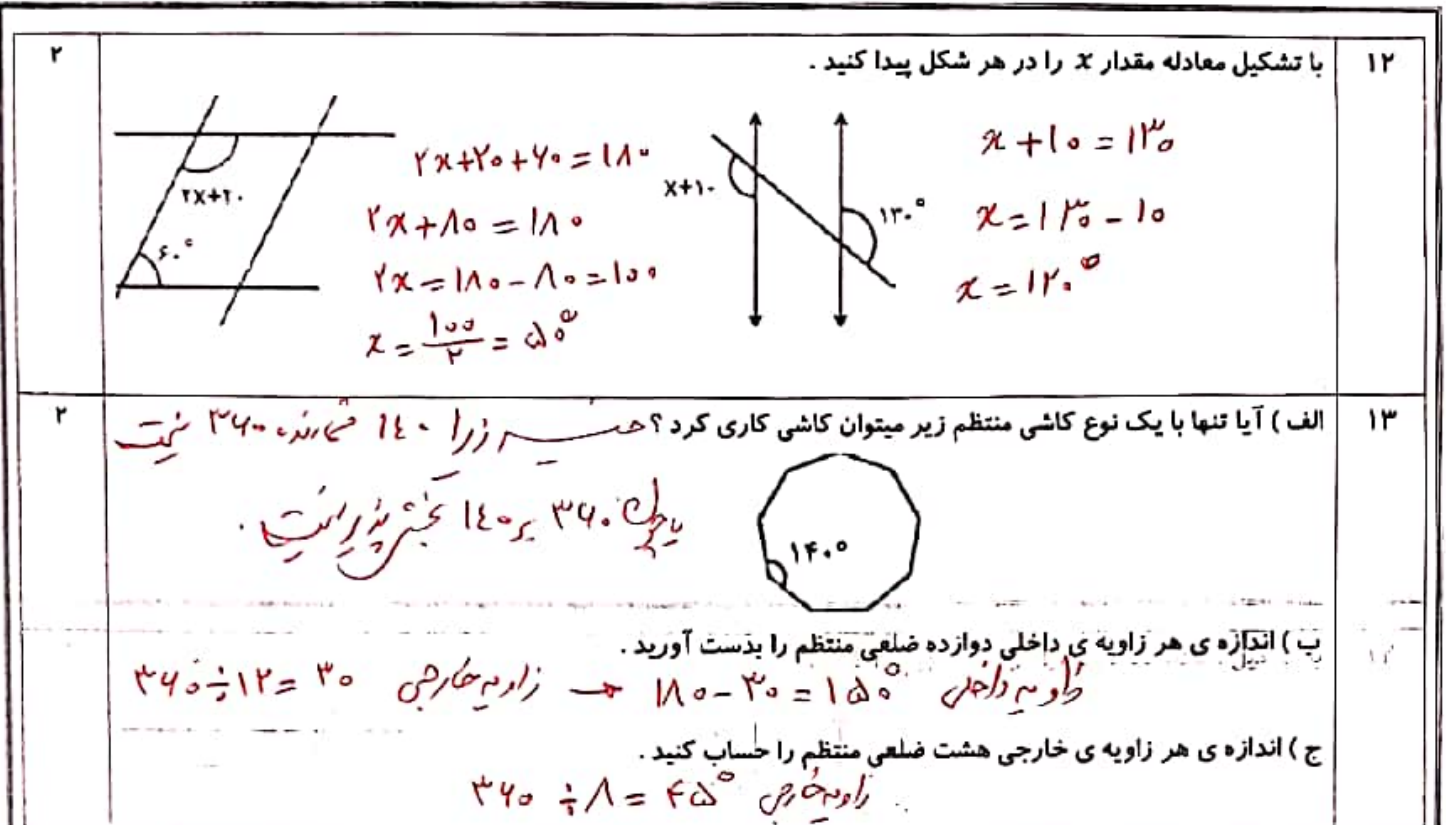 ۱۲
با تشکیل معادله مقدار x را در هر شکل پیدا کنید .
۲
x + ۱۰ = ۱۳۰
x = ۱۳۰ - ۱۰
x = ۱۲۰°
x+۱۰
۱۳۰°
۲x+۲۰+۶۰ = ۱۸۰
۲x + ۸۰ = ۱۸۰
۲x = ۱۸۰ - ۸۰ = ۱۰۰
x = ۱۰۰/۲ = ۵۰°
۲x+۲۰
۶۰°
۱۳
الف ) آیا تنها با یک نوع کاشی منتظم زیر میتوان کاشی کاری کرد ؟ خیر زیرا ۱۴۰ شمارنده ۳۶۰ نیست
۲
یا چون ۳۶۰ بر ۱۴۰ بخش پذیر نیست .
۱۴۰°
ب ) اندازه ی هر زاویه ی داخلی دوازده ضلعی منتظم را بدست آورید .
۳۶۰ ÷ ۱۲ = ۳۰ زاویه خارجی → ۱۸۰ - ۳۰ = ۱۵۰° زاویه داخلی
ج ) اندازه ی هر زاویه ی خارجی هشت ضلعی منتظم را حساب کنید .
۳۶۰ ÷ ۸ = ۴۵° زاویه خارجی